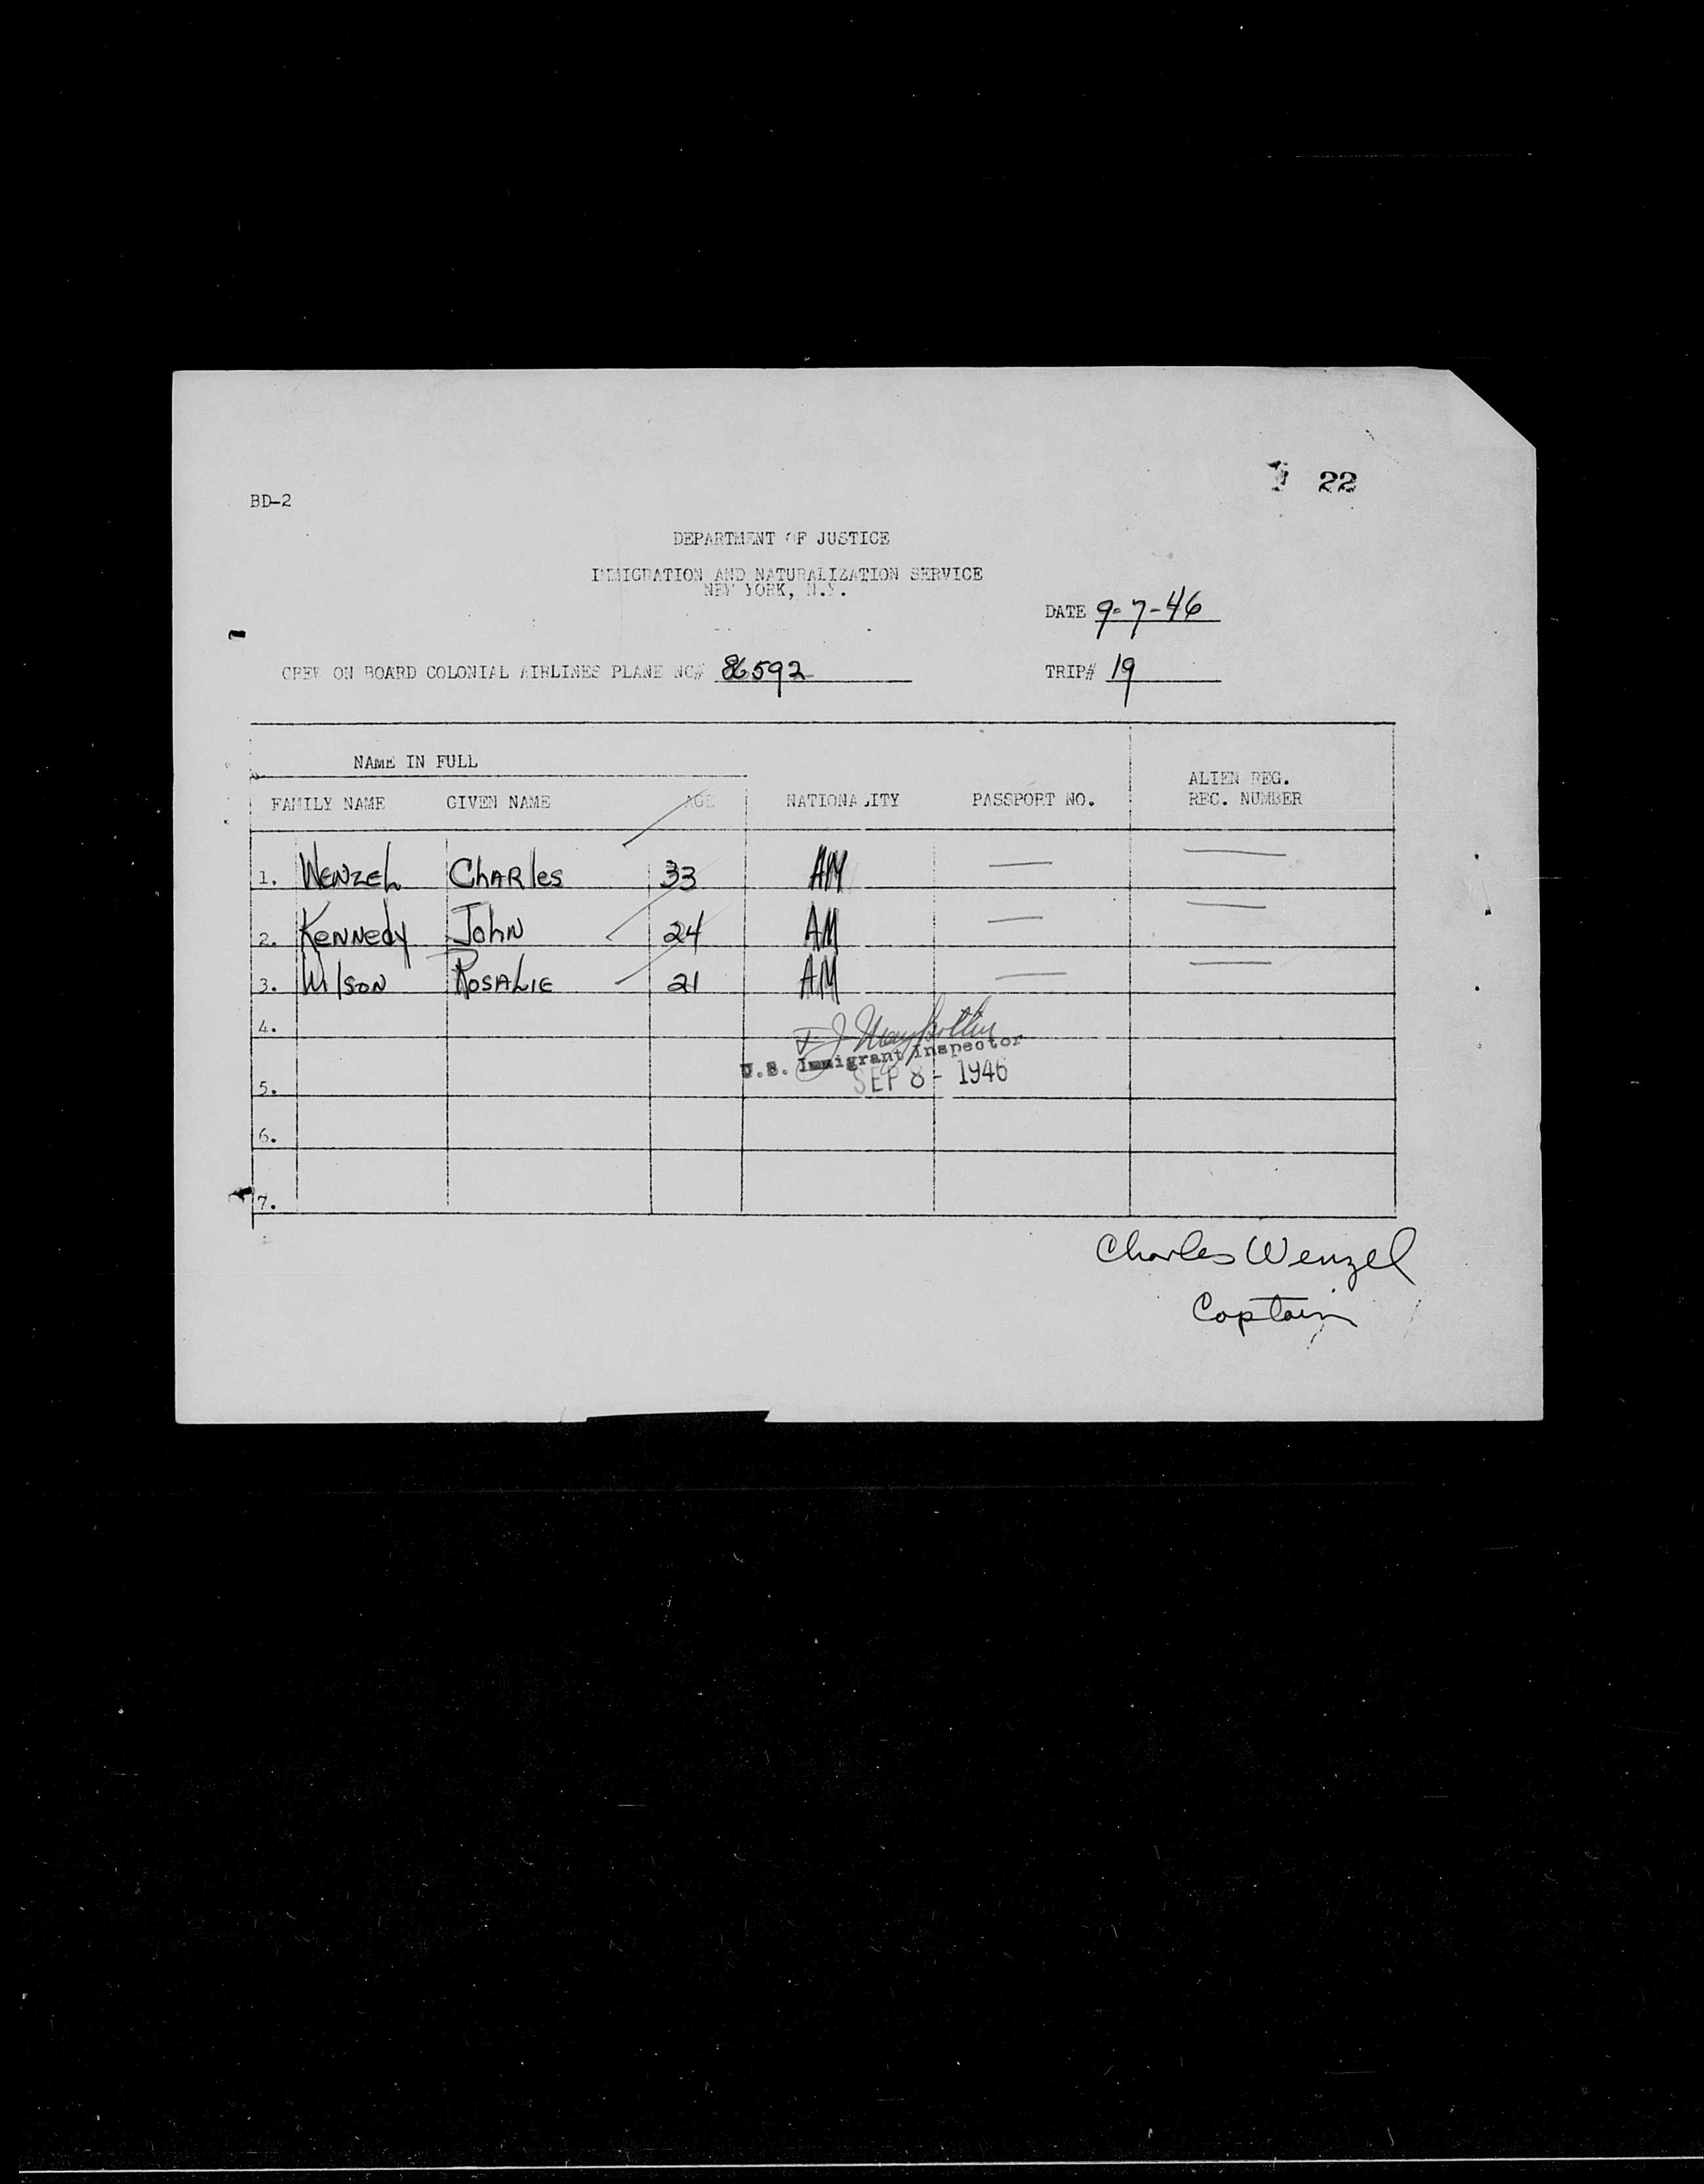 22
BD-2
DEPARTMENT OF JUSTICE
IMMIGRATION AND NATURALIZATION SERVICE
NEW YORK, N.Y.
DATE 9-7-46
CREW ON BOARD COLONIAL AIRLINES PLANE NC# 86592 TRIP# 19
NAME IN FULL
ALIEN REG.
FAMILY NAME GIVEN NAME AGE NATIONALITY PASSPORT NO. REC. NUMBER
1. WENZEL CHARles 33 AM — —
2. KeNNedy JohN 24 AM — —
3. WIlsoN ROSALIE 21 AM — —
4.
U.S. Immigrant Inspector
SEP 8 - 1946
5.
6.
7.
Charles Wenzel
Captain